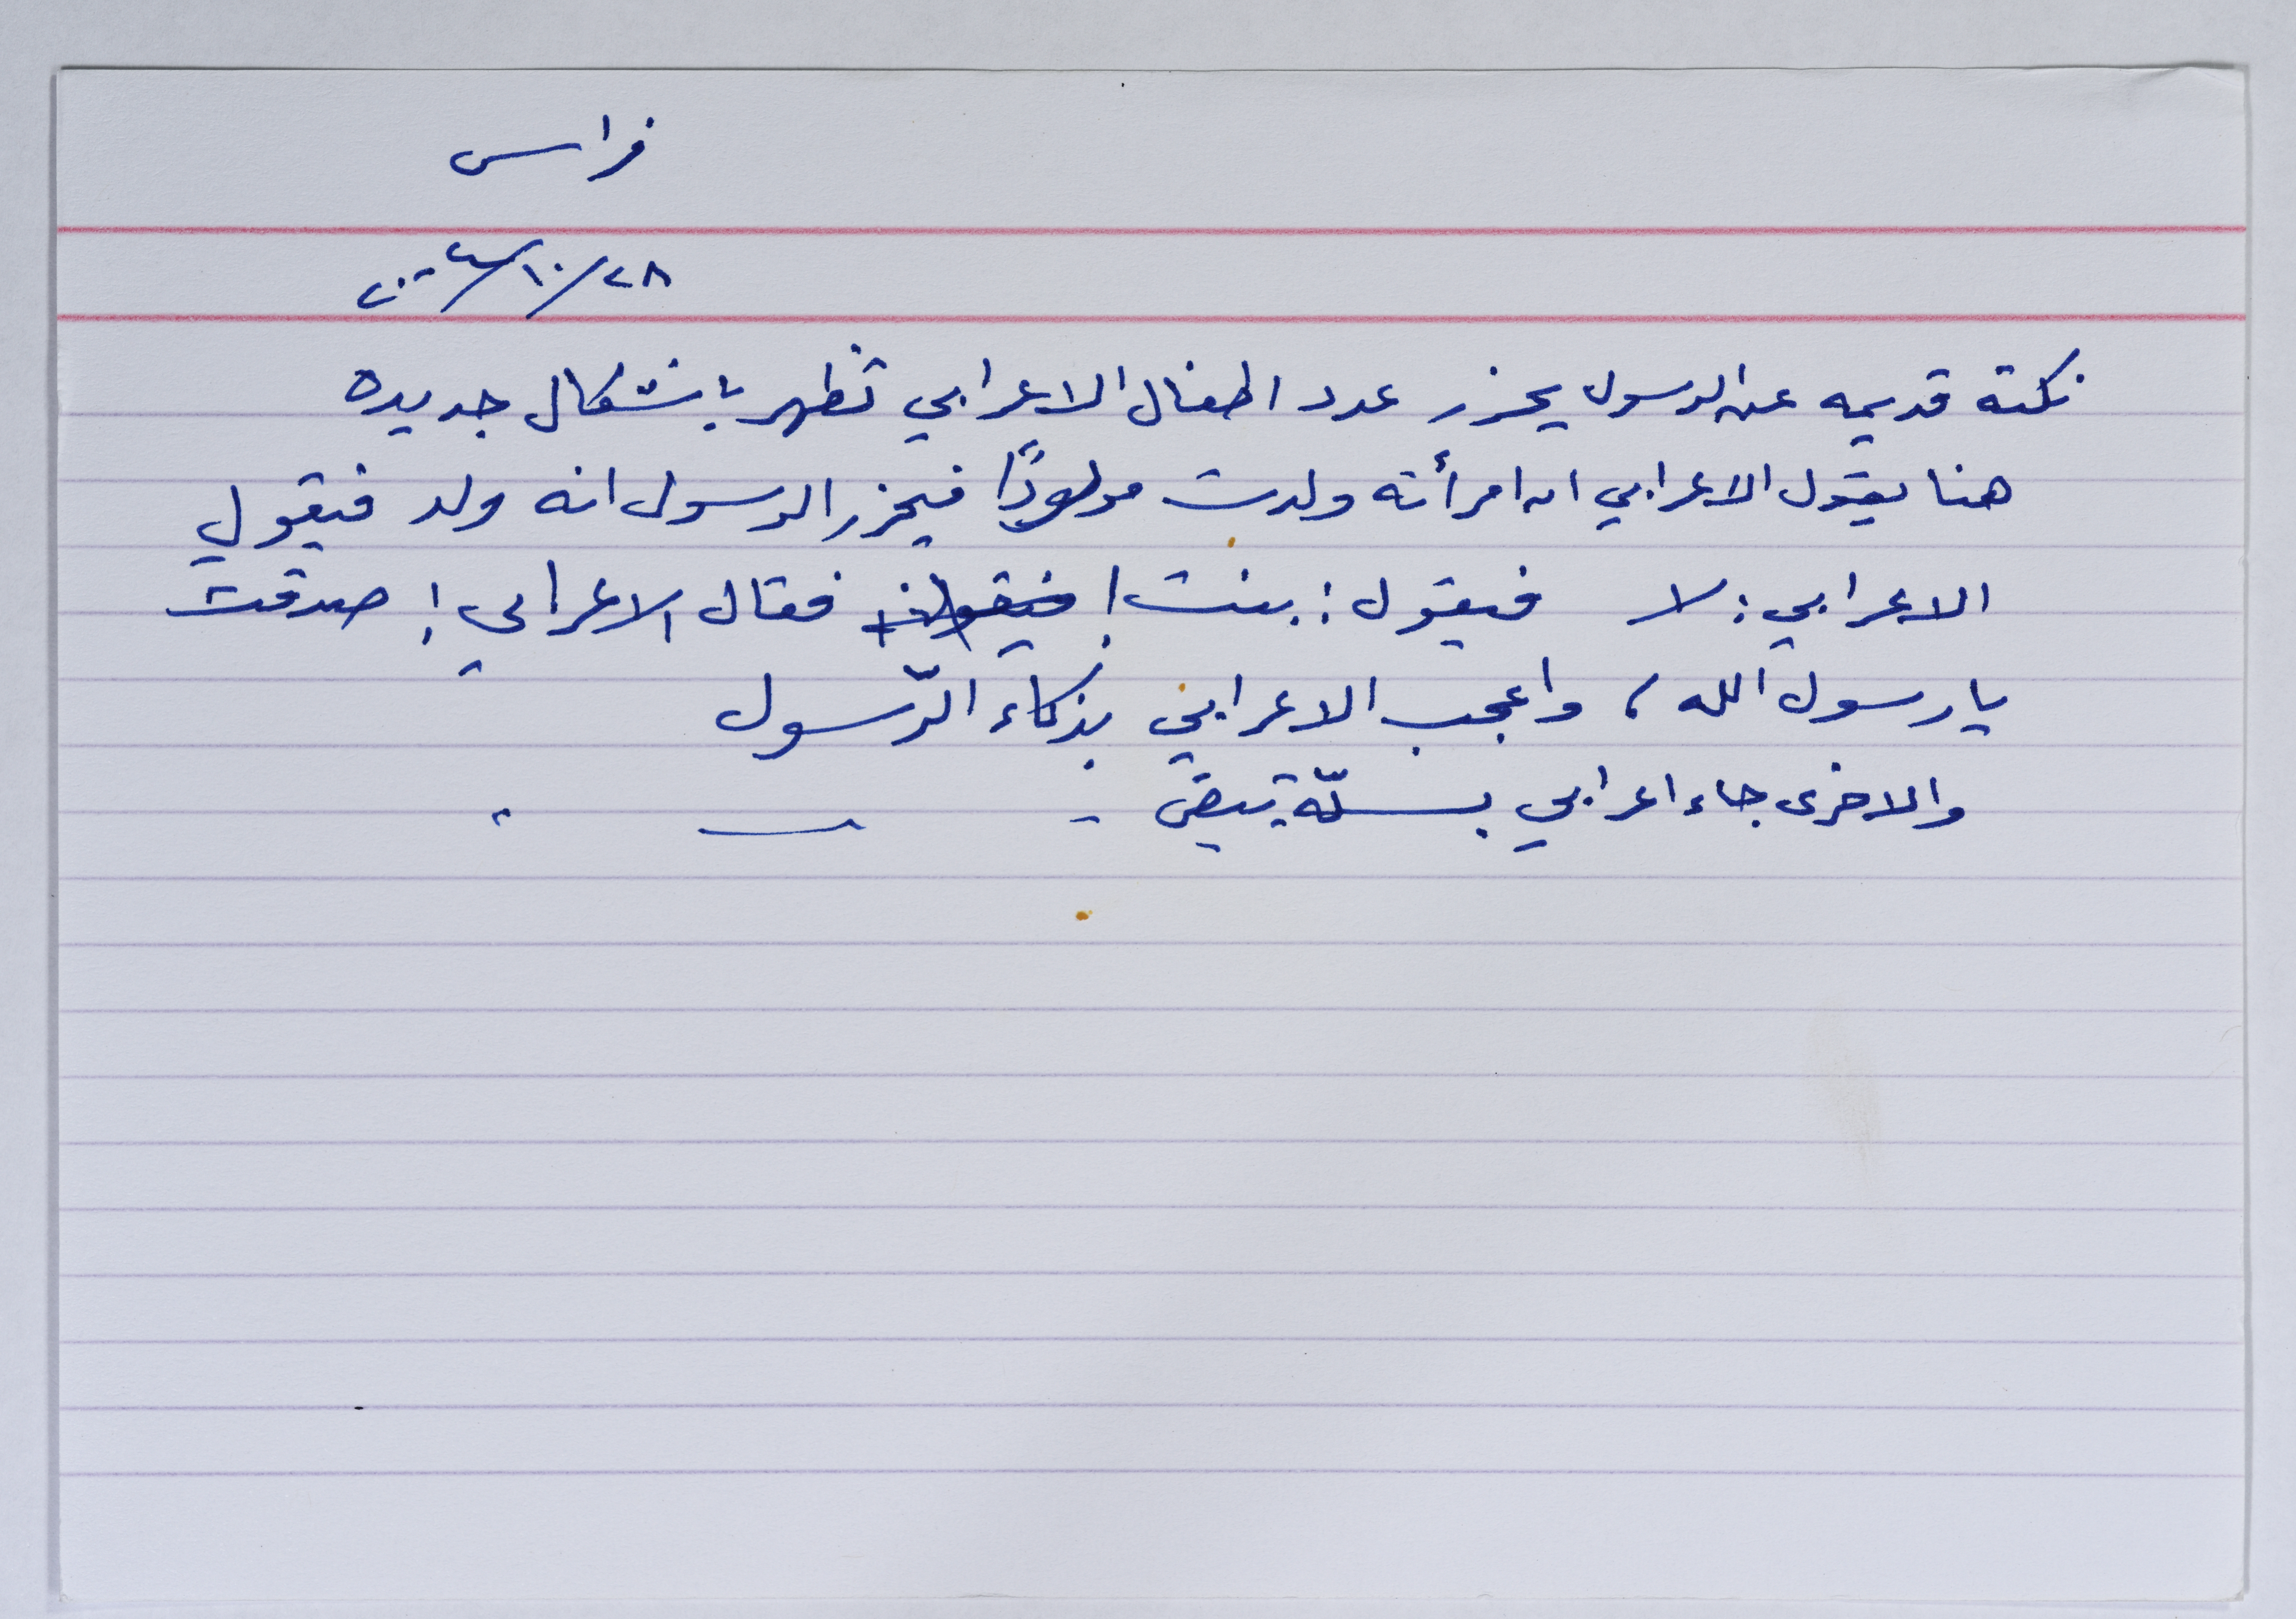 فراس
٢٨/١٠/٢٠٠٤
نكتة قديمه عن الرسول يحزر عدد اطفال الاعرابي تظهر باشكال جديده
هنا يقول الاعرابي ان امرأته ولدت مولودًا فيحزر الرسول انه ولد فيقول
الاعرابي: لا فيقول: بنت! فقال الاعرابي: صدقت
يا رسول الله، واعجب الاعرابي بذكاء الرّسول
والاخرى جاء اعرابي بسلّة بيض